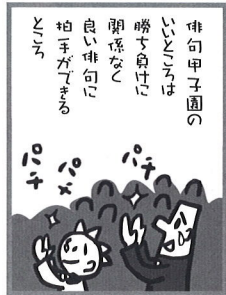 俳句甲子園の
いいところは
勝ち負けに
関係なく
良い俳句に
拍手ができる
ところ
パチ
パチ
パチ